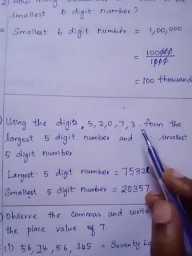 smallest 5 digit number?
Smallest 6 digit number = 1,00,000
= 100000
1000
= 100 thousand
Using the digits, 5, 2, 0, 7, 3. form the
largest 5 digit number and smallest
5 digit number
Largest 5 digit number = 7532
Smallest 5 digit number = 20357
Observe the commas and write
the place value of 7.
1) 56, 74, 56, 345 = Seventy